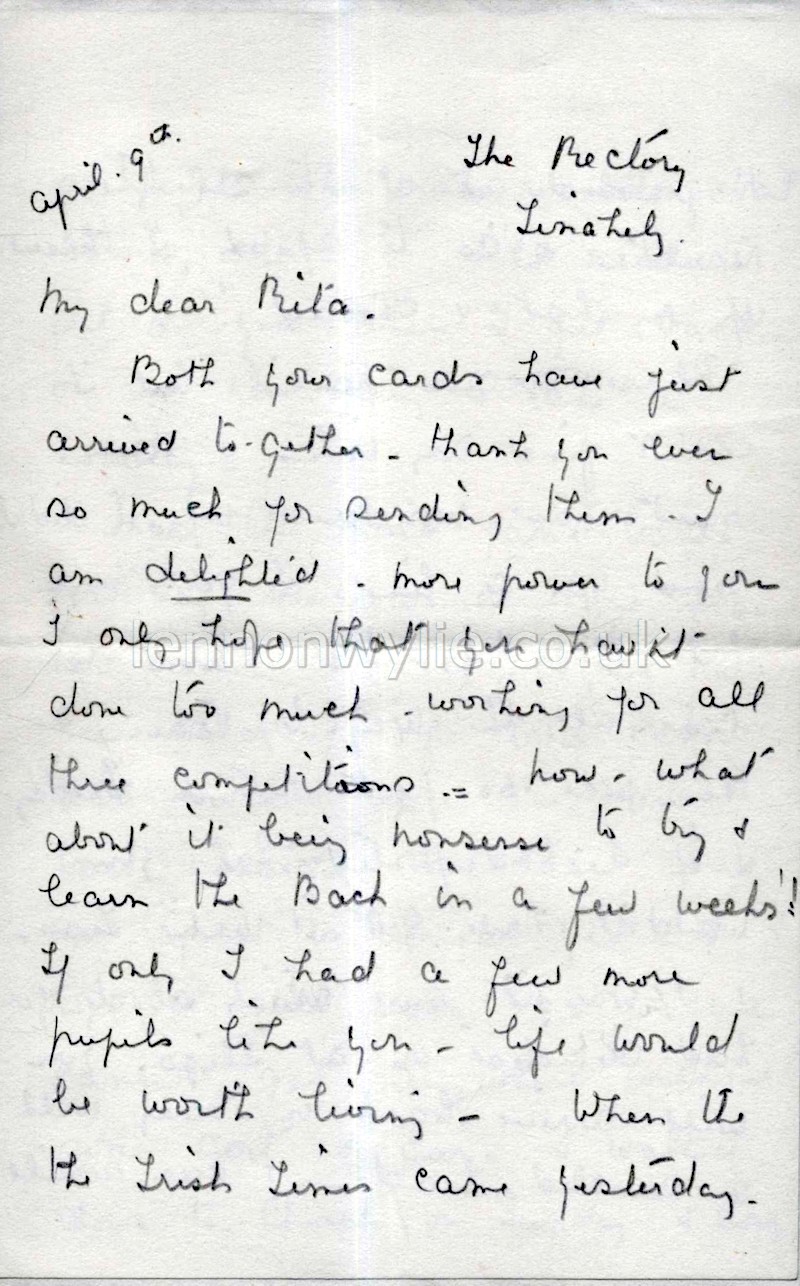 april. 9th.
The Rectory
Tinahely
My dear Rita.
Both your cards have just
arrived to-gether - thank you ever
so much for sending them - I
am delighted - more power to you
I only hope that you hav'nt
lennonwylie.co.uk
done too much - working for all
three competitions -= now - what
about it being nonsense to try &
learn the Bach in a few weeks!!
If only I had a few more
pupils like you - life would
be worth living - When the
the Irish Times came yesterday -